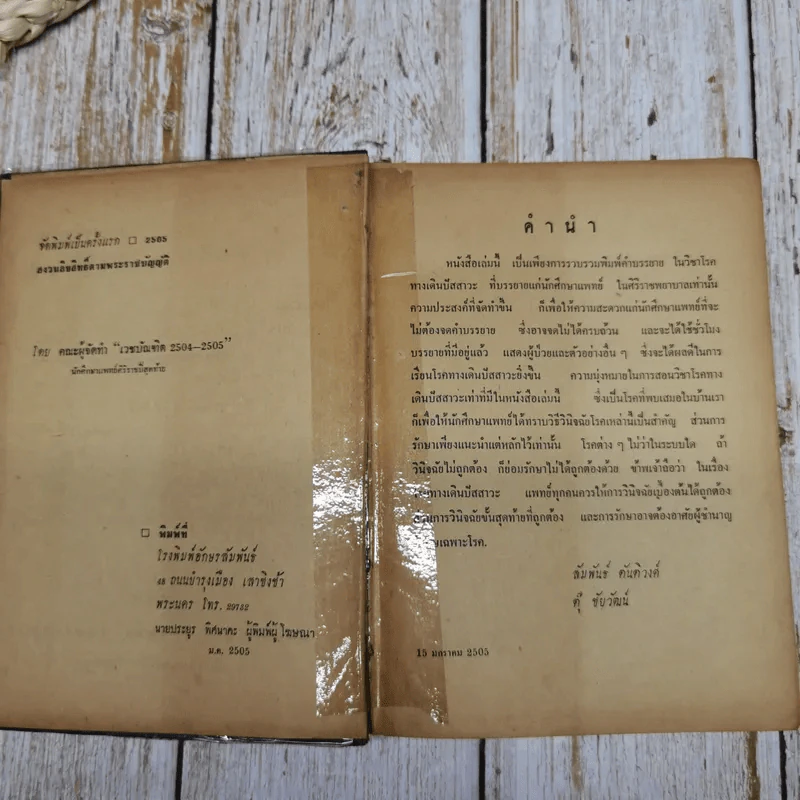 จัดพิมพ์เป็นครั้งแรก □ 2505
สงวนลิขสิทธิ์ตามพระราชบัญญัติ
โดย คณะผู้จัดทำ “เวชบัณฑิต 2504—2505”
นักศึกษาแพทย์ศิริราชปีสุดท้าย
□ พิมพ์ที่
โรงพิมพ์อักษรสัมพันธ์
48 ถนนบำรุงเมือง เสาชิงช้า
พระนคร โทร. 29742
นายประยูร พิศนาคะ ผู้พิมพ์ผู้โฆษณา
ม.ค. 2505
คำนำ
หนังสือเล่มนี้ เป็นเพียงการรวบรวมพิมพ์คำบรรยาย ในวิชาโรค
ทางเดินปัสสาวะ ที่บรรยายแก่นักศึกษาแพทย์ ในศิริราชพยาบาลเท่านั้น
ความประสงค์ที่จัดทำขึ้น ก็เพื่อให้ความสะดวกแก่นักศึกษาแพทย์ที่จะ
ไม่ต้องจดคำบรรยาย ซึ่งอาจจดไม่ได้ครบถ้วน และจะได้ใช้ชั่วโมง
บรรยายที่มีอยู่แล้ว แสดงผู้ป่วยและตัวอย่างอื่น ๆ ซึ่งจะได้ผลดีในการ
เรียนโรคทางเดินปัสสาวะยิ่งขึ้น ความมุ่งหมายในการสอนวิชาโรคทาง
เดินปัสสาวะเท่าที่มีในหนังสือเล่มนี้ ซึ่งเป็นโรคที่พบเสมอในบ้านเรา
ก็เพื่อให้นักศึกษาแพทย์ได้ทราบวิธีวินิจฉัยโรคเหล่านี้เป็นสำคัญ ส่วนการ
รักษาเพียงแนะนำแต่หลักไว้เท่านั้น โรคต่าง ๆ ไม่ว่าในระบบใด ถ้า
วินิจฉัยไม่ถูกต้อง ก็ย่อมรักษาไม่ได้ถูกต้องด้วย ข้าพเจ้าถือว่า ในเรื่อง
ทางเดินปัสสาวะ แพทย์ทุกคนควรให้การวินิจฉัยเบื้องต้นได้ถูกต้อง
ส่วนการวินิจฉัยขั้นสุดท้ายที่ถูกต้อง และการรักษาอาจต้องอาศัยผู้ชำนาญ
เฉพาะโรค.
สัมพันธ์ ตันติวงศ์
ตุ๊ ชัยวัฒน์
15 มกราคม 2505